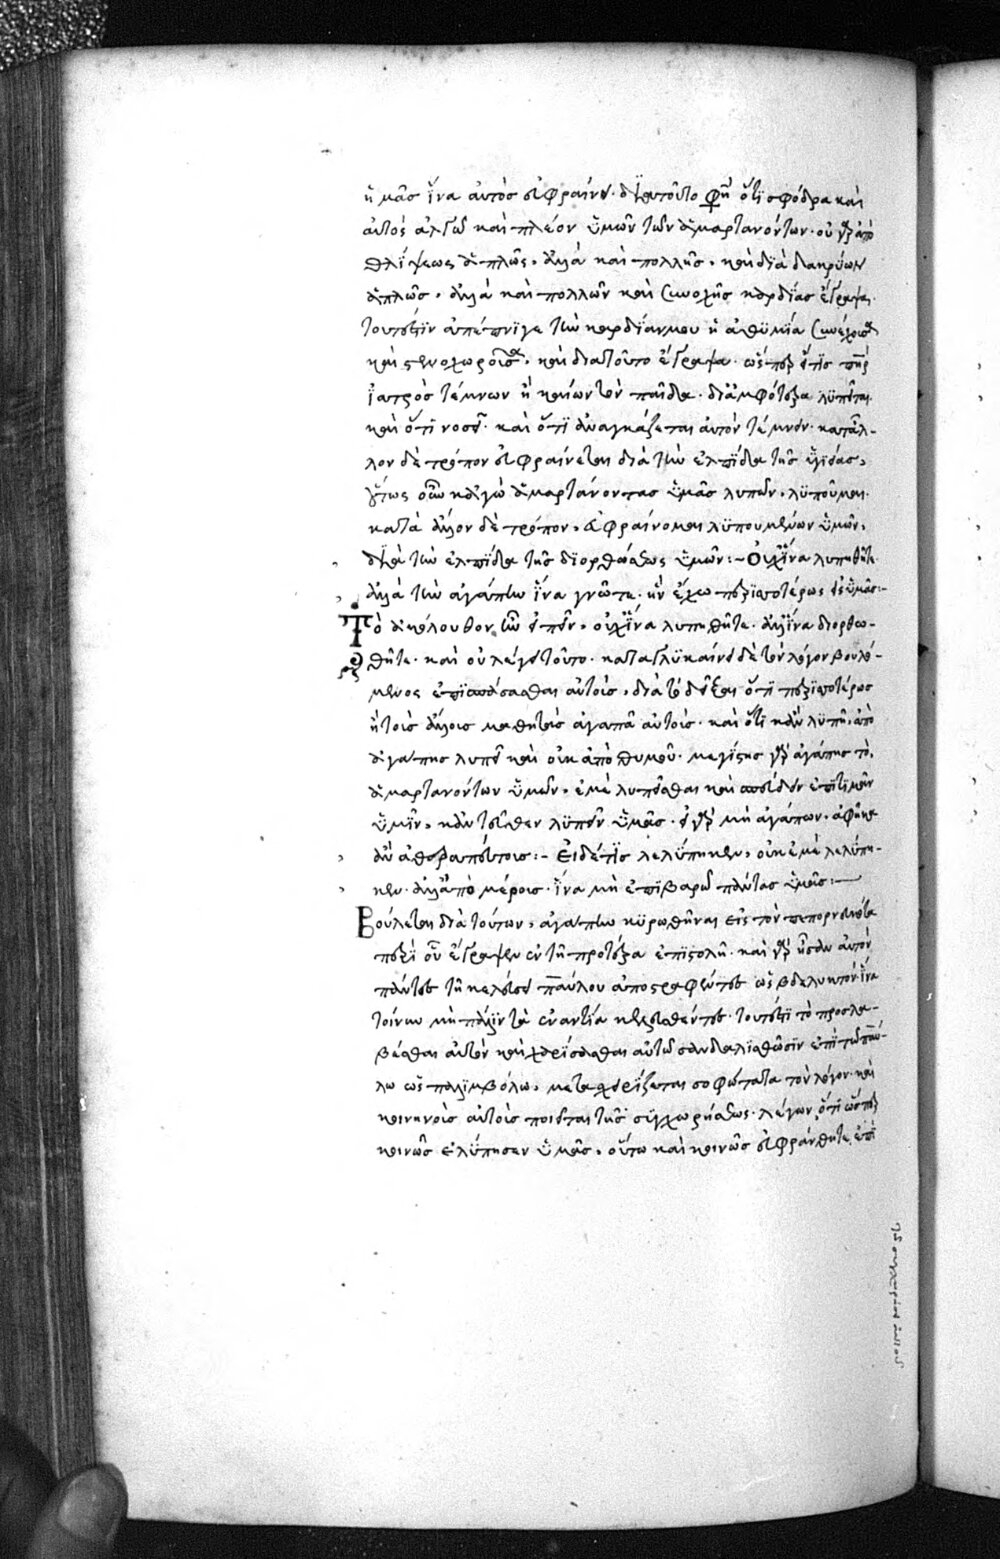 ἡμᾶς ἵνα αὐτὸς εὐφραίνη· διὰ τοῦτο φησὶ ὅτι σφόδρα καὶ
αὐτὸς ἀλγῶ καὶ πλέον ὑμῶν τῶν ἁμαρτανόντων· οὐ γὰρ ἀπὸ
θλίψεως ἁπλῶς, ἀλλὰ καὶ πολλῆς, καὶ διὰ δακρύων
ἁπλῶς, ἀλλὰ καὶ πολλῶν καὶ συνοχῆς καρδίας ἔγραψα·
τουτέστιν ἀπέπνιγε τὴν καρδίαν μου ἡ ἀθυμία συνέχουσα
καὶ στενοχωροῦσα, καὶ διὰ τοῦτο ἔγραψα· ὥσπερ εἴ τις πατὴρ
ἰατρὸς τέμνων ἢ καίων τὸν παῖδα· δι' ἀμφότερα λυπεῖται
καὶ ὅτι νοσεῖ· καὶ ὅτι ἀναγκάζεται αὐτὸν τέμνειν· κατ' ἄλ-
λον δὲ τρόπον εὐφραίνεται διὰ τὴν ἐλπίδα τῆς ὑγιείας,
οὕτως οὖν κἀγὼ ἁμαρτάνοντας ὑμᾶς λυπῶν, λυποῦμαι·
κατὰ ἄλλον δὲ τρόπον, εὐφραίνομαι λυπουμένων ὑμῶν,
διὰ τὴν ἐλπίδα τῆς διορθώσεως ὑμῶν:- Οὐχ ἵνα λυπηθῆτε
ἀλλὰ τὴν ἀγάπην ἵνα γνῶτε· ἣν ἔχω περισσοτέρως εἰς ὑμᾶς:-
Τὸ ἀκόλουθον ἦν εἰπεῖν· οὐχ ἵνα λυπηθῆτε· ἀλλ' ἵνα διορθω-
θῆτε· καὶ οὐ λέγει τοῦτο· καταγλυκαίνει δὲ τὸν λόγον βουλό-
μενος ἐπισπάσασθαι αὐτοὺς, διὰ τὸ δεῖξαι ὅτι περισσοτέρως
ἢ τοὺς ἄλλους μαθητὰς ἀγαπᾶ αὐτοὺς· καὶ ὅτι κἂν λυπῆ, ἀπὸ
ἀγάπης λυπεῖ καὶ οὐκ ἀπὸ θυμοῦ· μεγίστης γὰρ ἀγάπης τὸ,
ἁμαρτανόντων ὑμῶν, ἐμὲ λυπεῖσθαι καὶ ἐπιτιμᾶν
ὑμῖν, κἀντεῦθεν λυπεῖν ὑμᾶς· εἰ γὰρ μὴ ἀγάπων, ἀφῆκα
ἂν ἀθεραπεύτους:- Εἰ δέ τις λελύπηκεν, οὐκ ἐμὲ λελύπη-
κεν· ἀλλ' ἀπὸ μέρους· ἵνα μὴ ἐπιβαρῶ πάντας ὑμᾶς:-
Βούλεται διὰ τούτων, ἀγάπην κυρωθῆναι εἰς τὸν πεπορνευκότα
περὶ οὗ ἔγραψεν ἐν τῆ προτέρα ἐπιστολῆ· καὶ γὰρ ἦσαν αὐτὸν
πάντες τῆ κελεύσει παύλου ἀποστραφέντες ὡς βδελυκτόν· ἵνα
τοίνυν μὴ πάλιν τὰ ἐναντία κελευσθέντες· τουτέστι τὸ προσλα-
βέσθαι αὐτὸν καὶ χαρίσασθαι αὐτῶ σκανδαλισθῶσιν ἐπὶ τῶ παύ-
λω ὡς παλιμβόλω, μεταχειρίζεται σοφώτατα τὸν λόγον· καὶ
κοινωνοὺς αὐτοὺς ποιεῖται τῆς συγχωρήσεως· λέγων, ὅτι ὥσπερ
κοινῶς ἐλύπησεν ὑμᾶς, οὕτω καὶ κοινῶς εὐφράνθητε, ἐπὶ